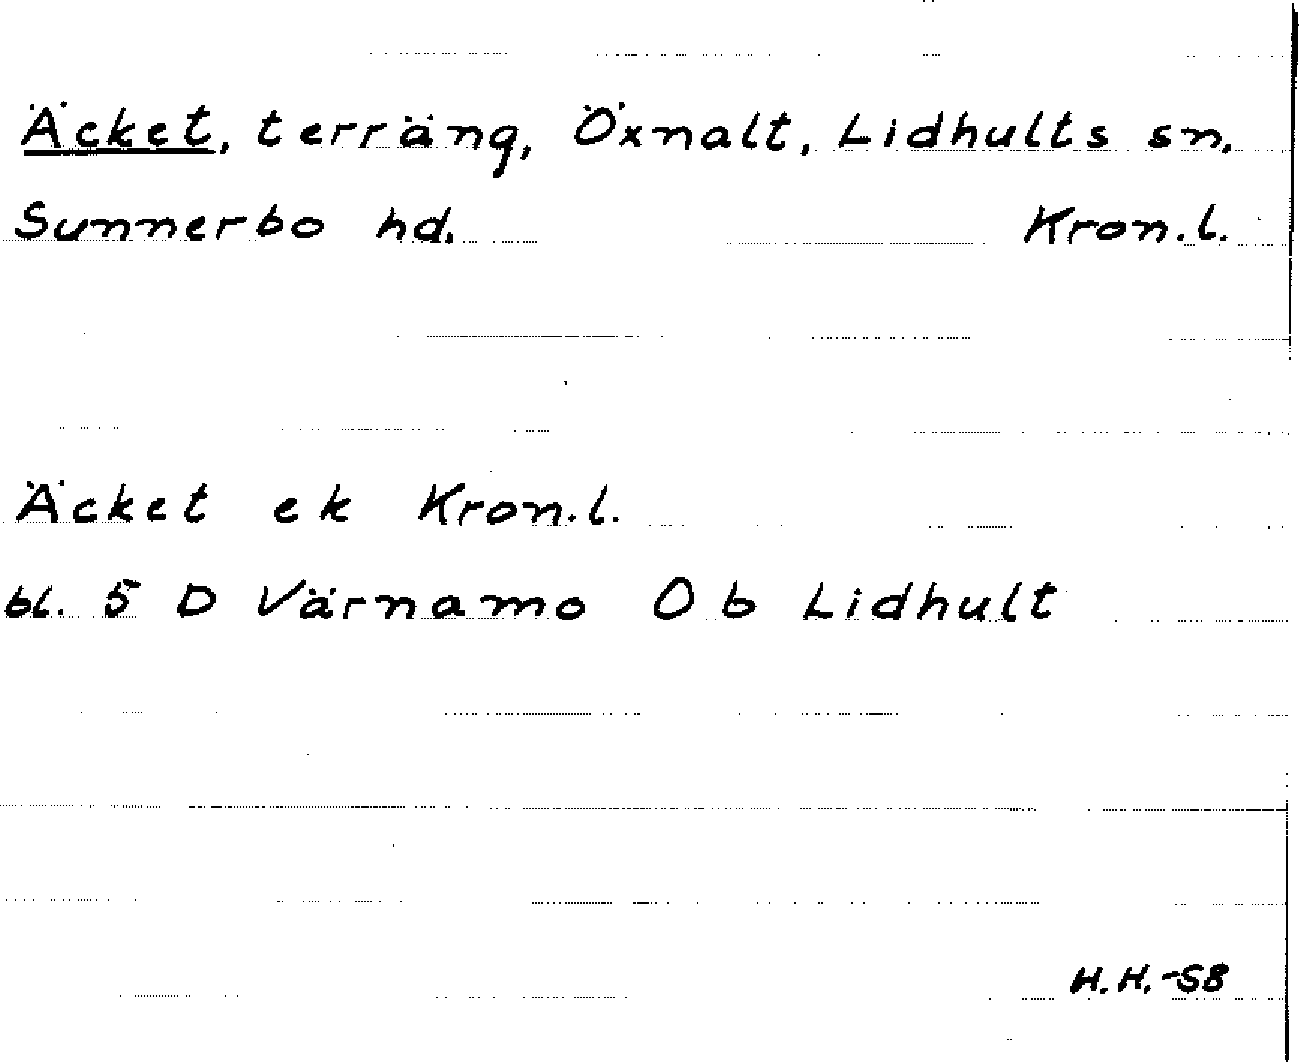 Äcket, terräng, Öxnalt, Lidhults sn,
Sunnerbo hd. Kron.l.
Äcket ek Kron.l.
bl. 5 D Värnamo 0 b Lidhult
H.H.-58